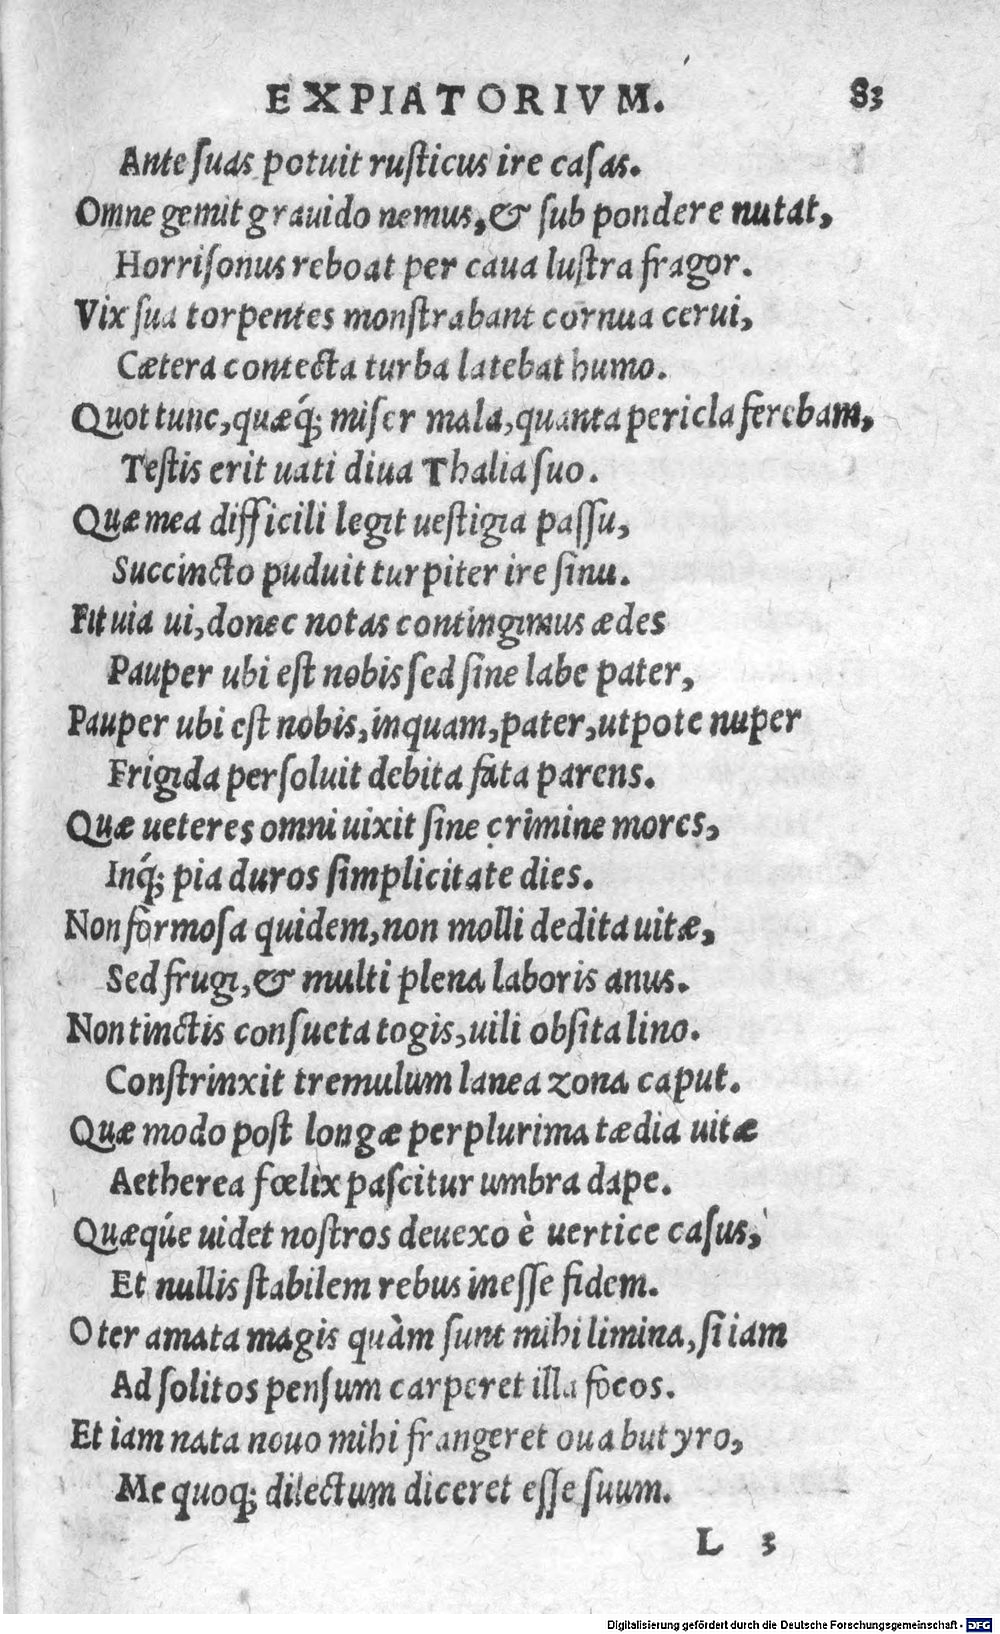 EXPIATORIVM. 83
Ante ſuas potuit ruſticus ire caſas.
Omne gemit grauido nemus, & ſub pondere nutat,
Horriſonus reboat per caua luſtra fragor.
Vix ſua torpentes monſtrabant cornua cerui,
Cætera contecta turba latebat humo.
Quot tunc, quæq́; miſer mala, quanta pericla ferebam,
Teſtis erit uati diua Thalia ſuo.
Quæ mea difficili legit ueſtigia paſſu,
Succincto puduit turpiter ire ſinu.
Fit uia ui, donec notas contingimus ædes
Pauper ubi eſt nobis ſed ſine labe pater,
Pauper ubi eſt nobis, inquam, pater, utpote nuper
Frigida perſoluit debita fata parens.
Quæ ueteres omni uixit ſine crimine mores,
Inq́; pia duros ſimplicitate dies.
Non formoſa quidem, non molli dedita uitæ,
Sed frugi, & multi plena laboris anus.
Non tinctis conſueta togis, uili obſita lino.
Conſtrinxit tremulum lanea zona caput.
Quæ modo poſt longæ per plurima tædia uitæ
Aetherea fœlix paſcitur umbra dape.
Quæqúe uidet noſtros deuexo è uertice caſus,
Et nullis ſtabilem rebus ineſſe fidem.
O ter amata magis quàm ſunt mihi limina, ſi iam
Ad ſolitos penſum carperet illa focos.
Et iam nata nouo mihi frangeret oua butyro,
Me quoq; dilectum diceret eſſe ſuum.
L 3
Digitalisierung gefördert durch die Deutsche Forschungsgemeinschaft - DFG